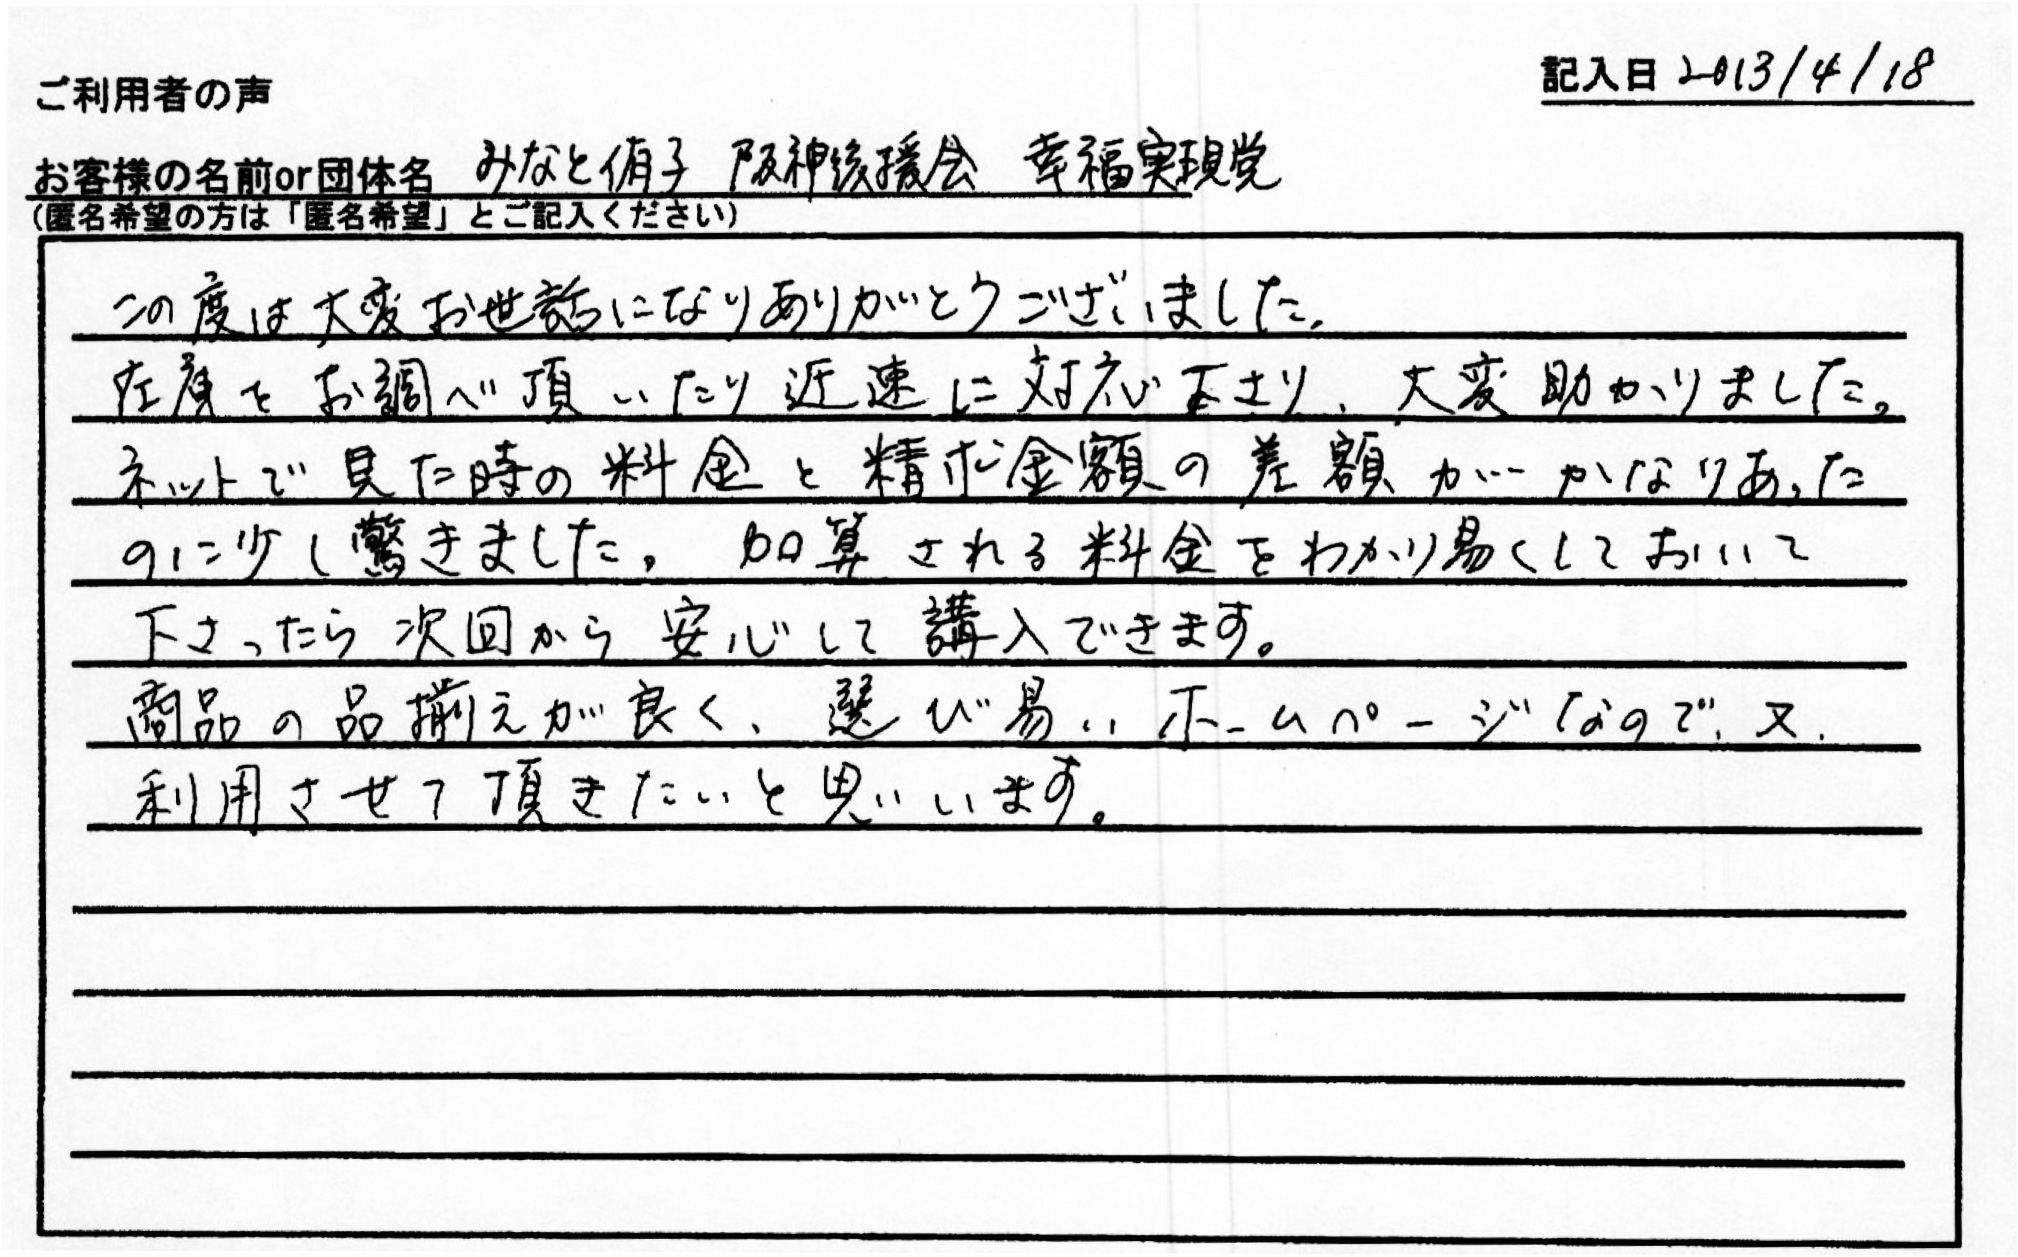 ご利用者の声
記入日 2013/4/18
お客様の名前or団体名 みなと侑子 阪神後援会 幸福実現党
(匿名希望の方は「匿名希望」とご記入ください)
この度は大変お世話になりありがとうございました。
在庫をお調べ頂いたり迅速に対応下さり、大変助かりました。
ネットで見た時の料金と精算金額の差額がかなりあった
のに少し驚きました。加算される料金をわかり易くしておいて
下さったら次回から安心して講入できます。
商品の品揃えが良く、選び易いホームページなので、又、
利用させて頂きたいと思いいます。